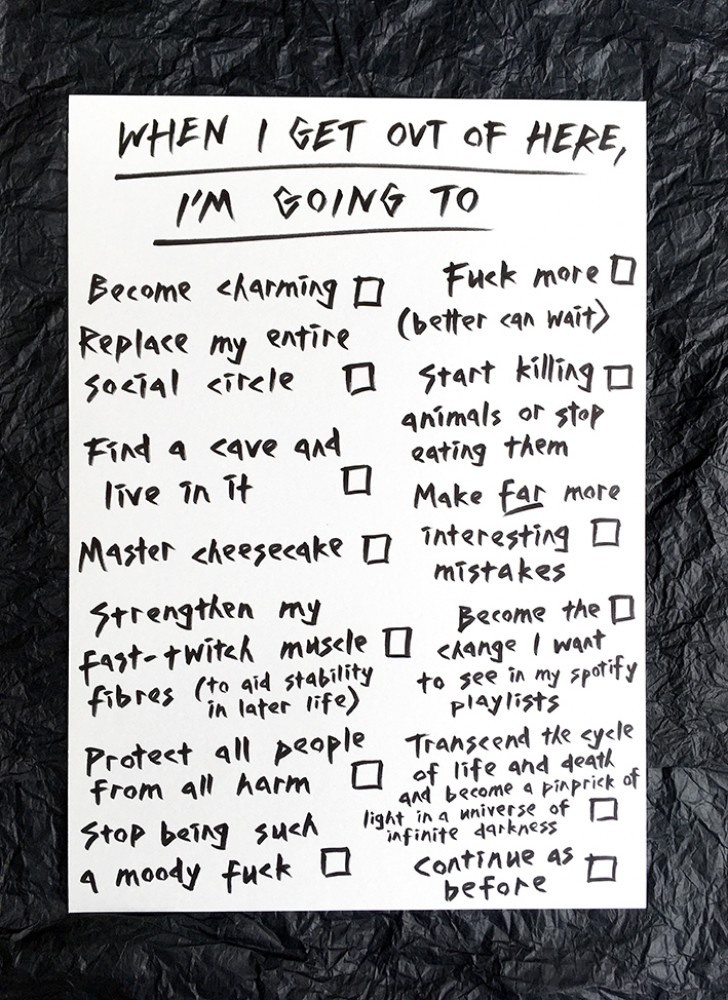 WHEN I GET OUT OF HERE,
I'M GOING TO
Become charming
Replace my entire
social circle
Find a cave and
live in it
Master cheesecake
Strengthen my
fast-twitch muscle
fibres (to aid stability
in later life)
Protect all people
from all harm
Stop being such
a moody fuck
Fuck more
(better can wait)
Start killing
animals or stop
eating them
Make far more
interesting
mistakes
Become the
change I want
to see in my spotify
playlists
Transcend the cycle
of life and death
and become a pinprick of
light in a universe of
infinite darkness
Continue as
before